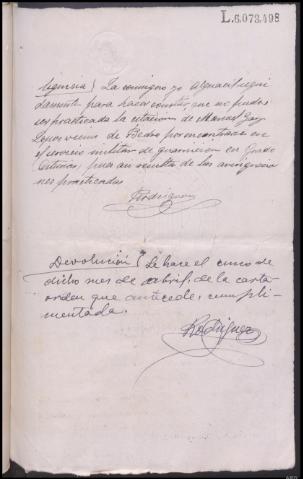 L.6.073.498
Diligencia) La consigno yo Alguacil segui
damente para hacer constar que no pudo
ser practicada la citacion de Manuel
vecino de Bedro por encontrarse en
el servicio militar de guarnicion en
pues asi resulta de las averigacio
nes practicadas
Rodriguez
Devolución) Se hace el cinco de
dicho mes de abril, de la carta
orden que antecede, cumpli-
mentada.
Rodriguez